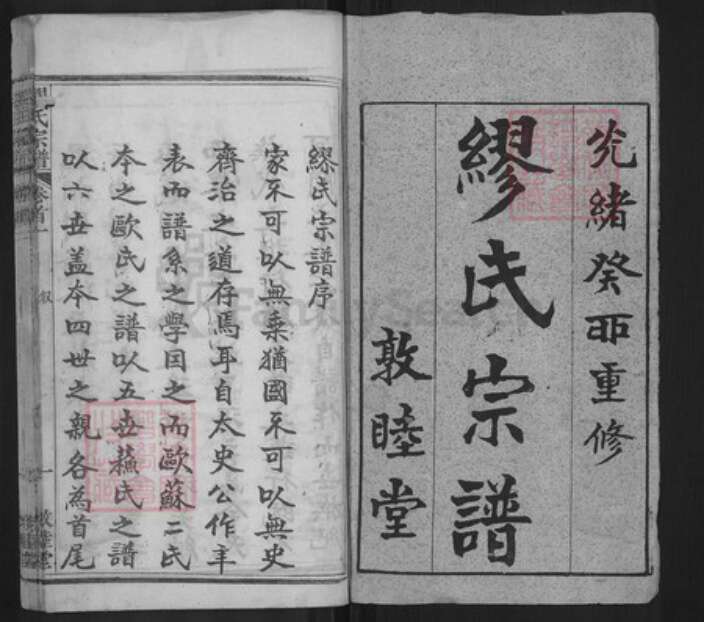 光緒癸卯重修
繆氏宗譜
敦睦堂
繆氏宗譜序
家不可以無乗猶國不可以無史
齊治之道存焉耳自太史公作年
表而譜系之學因之而歐蘇二氏
本之歐氏之譜以五世蘇氏之譜
以六世蓋本四世之親各為首尾
氏宗譜 卷首一 敘 一 敦睦堂